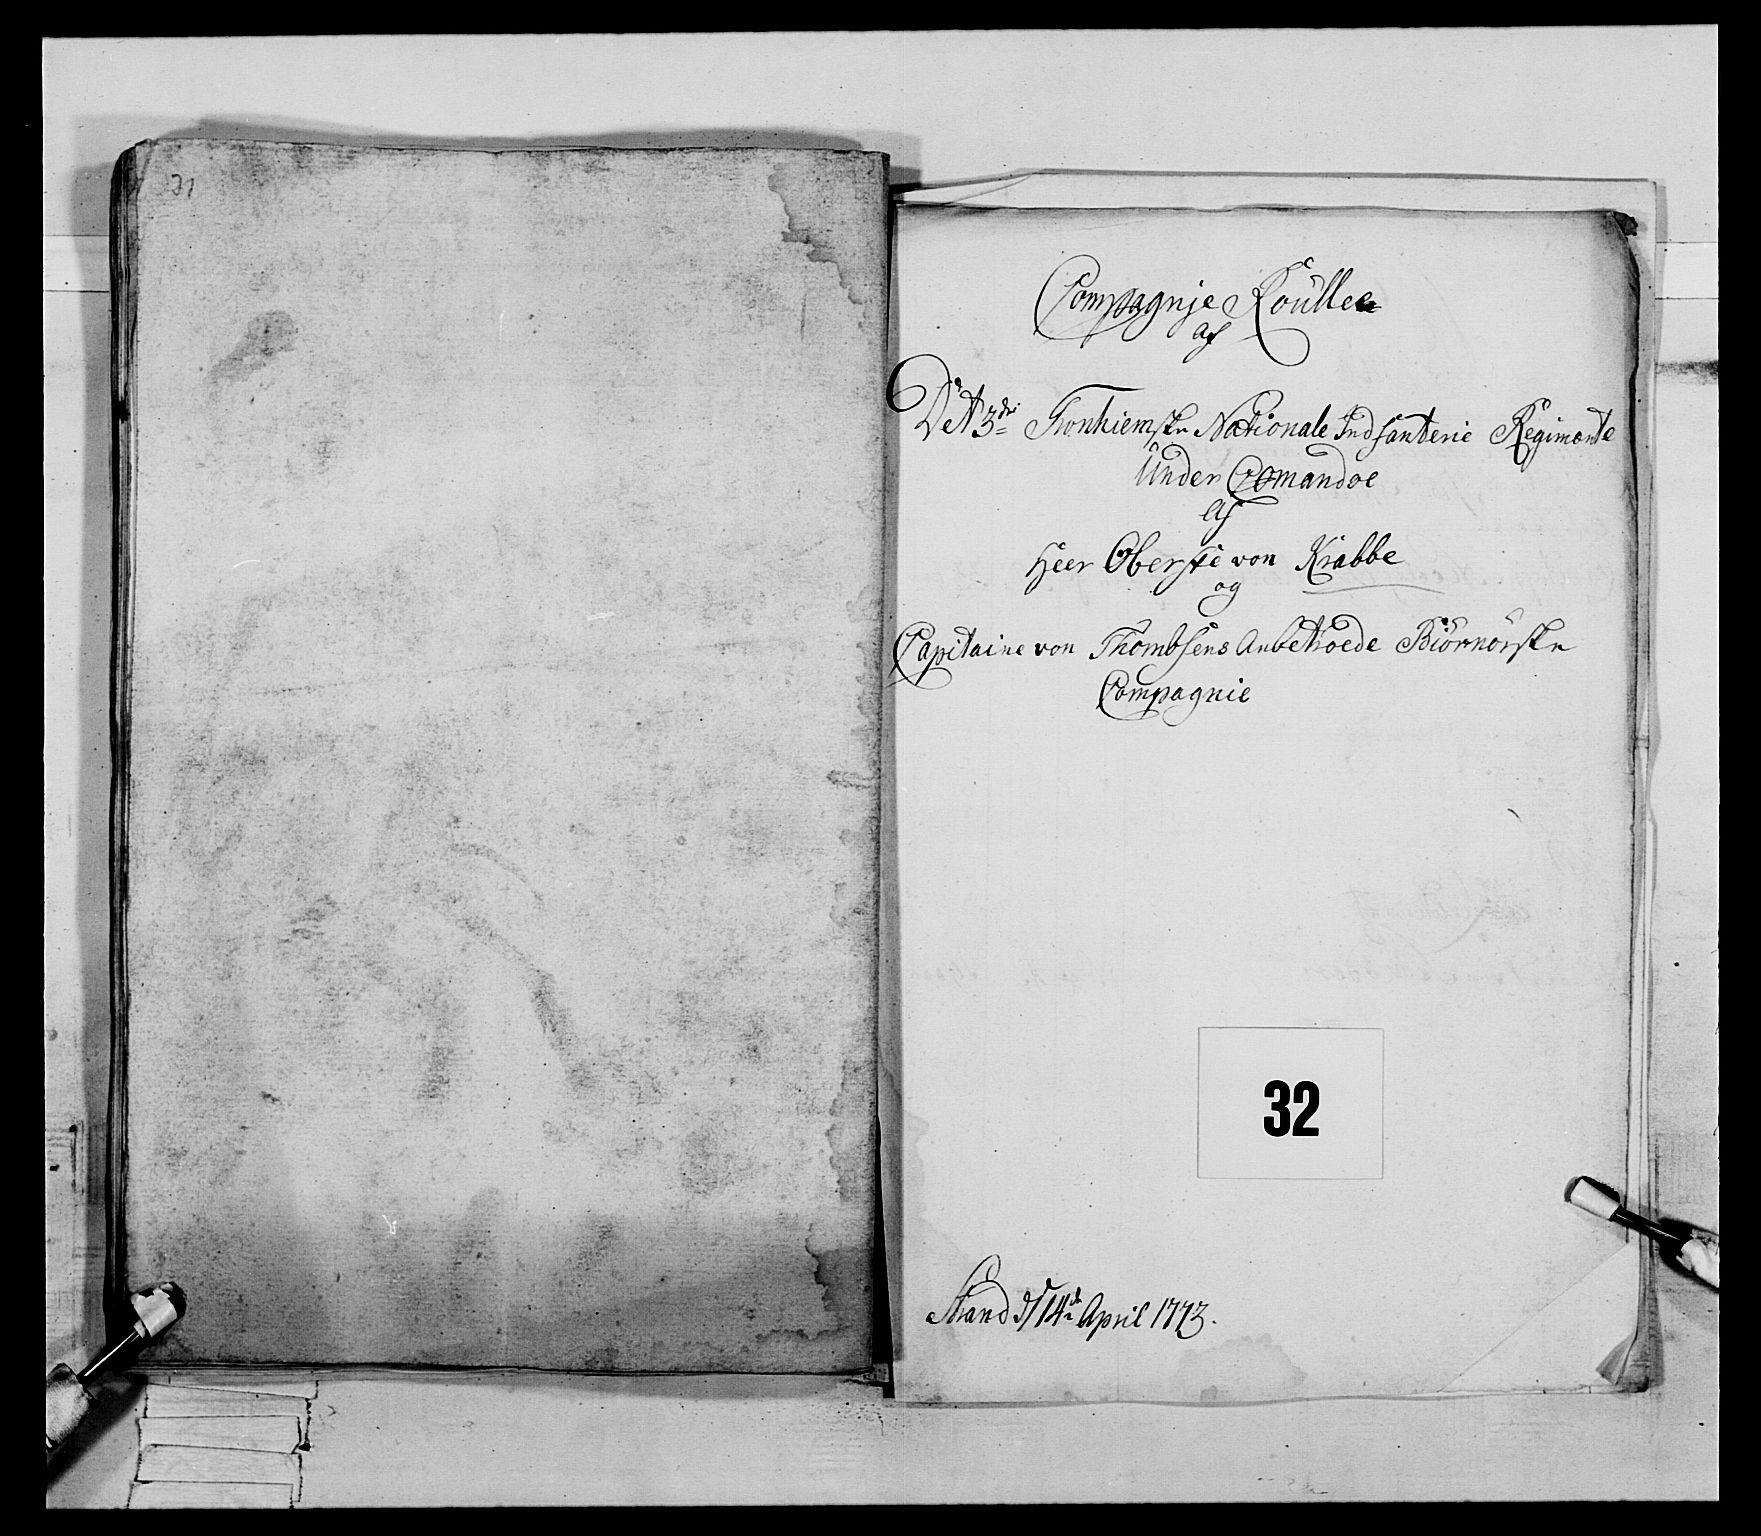 31
Compagnie Roulle
af
Det 3die Tronhiemske Nationale Indfanterie Regimente
Under Comandoe
af
Heer Oberste von Krabbe
og
Capitaine von Thombsens Anbetroede Biörnörske
Compagnie
32
Strand d 14de April 1773.